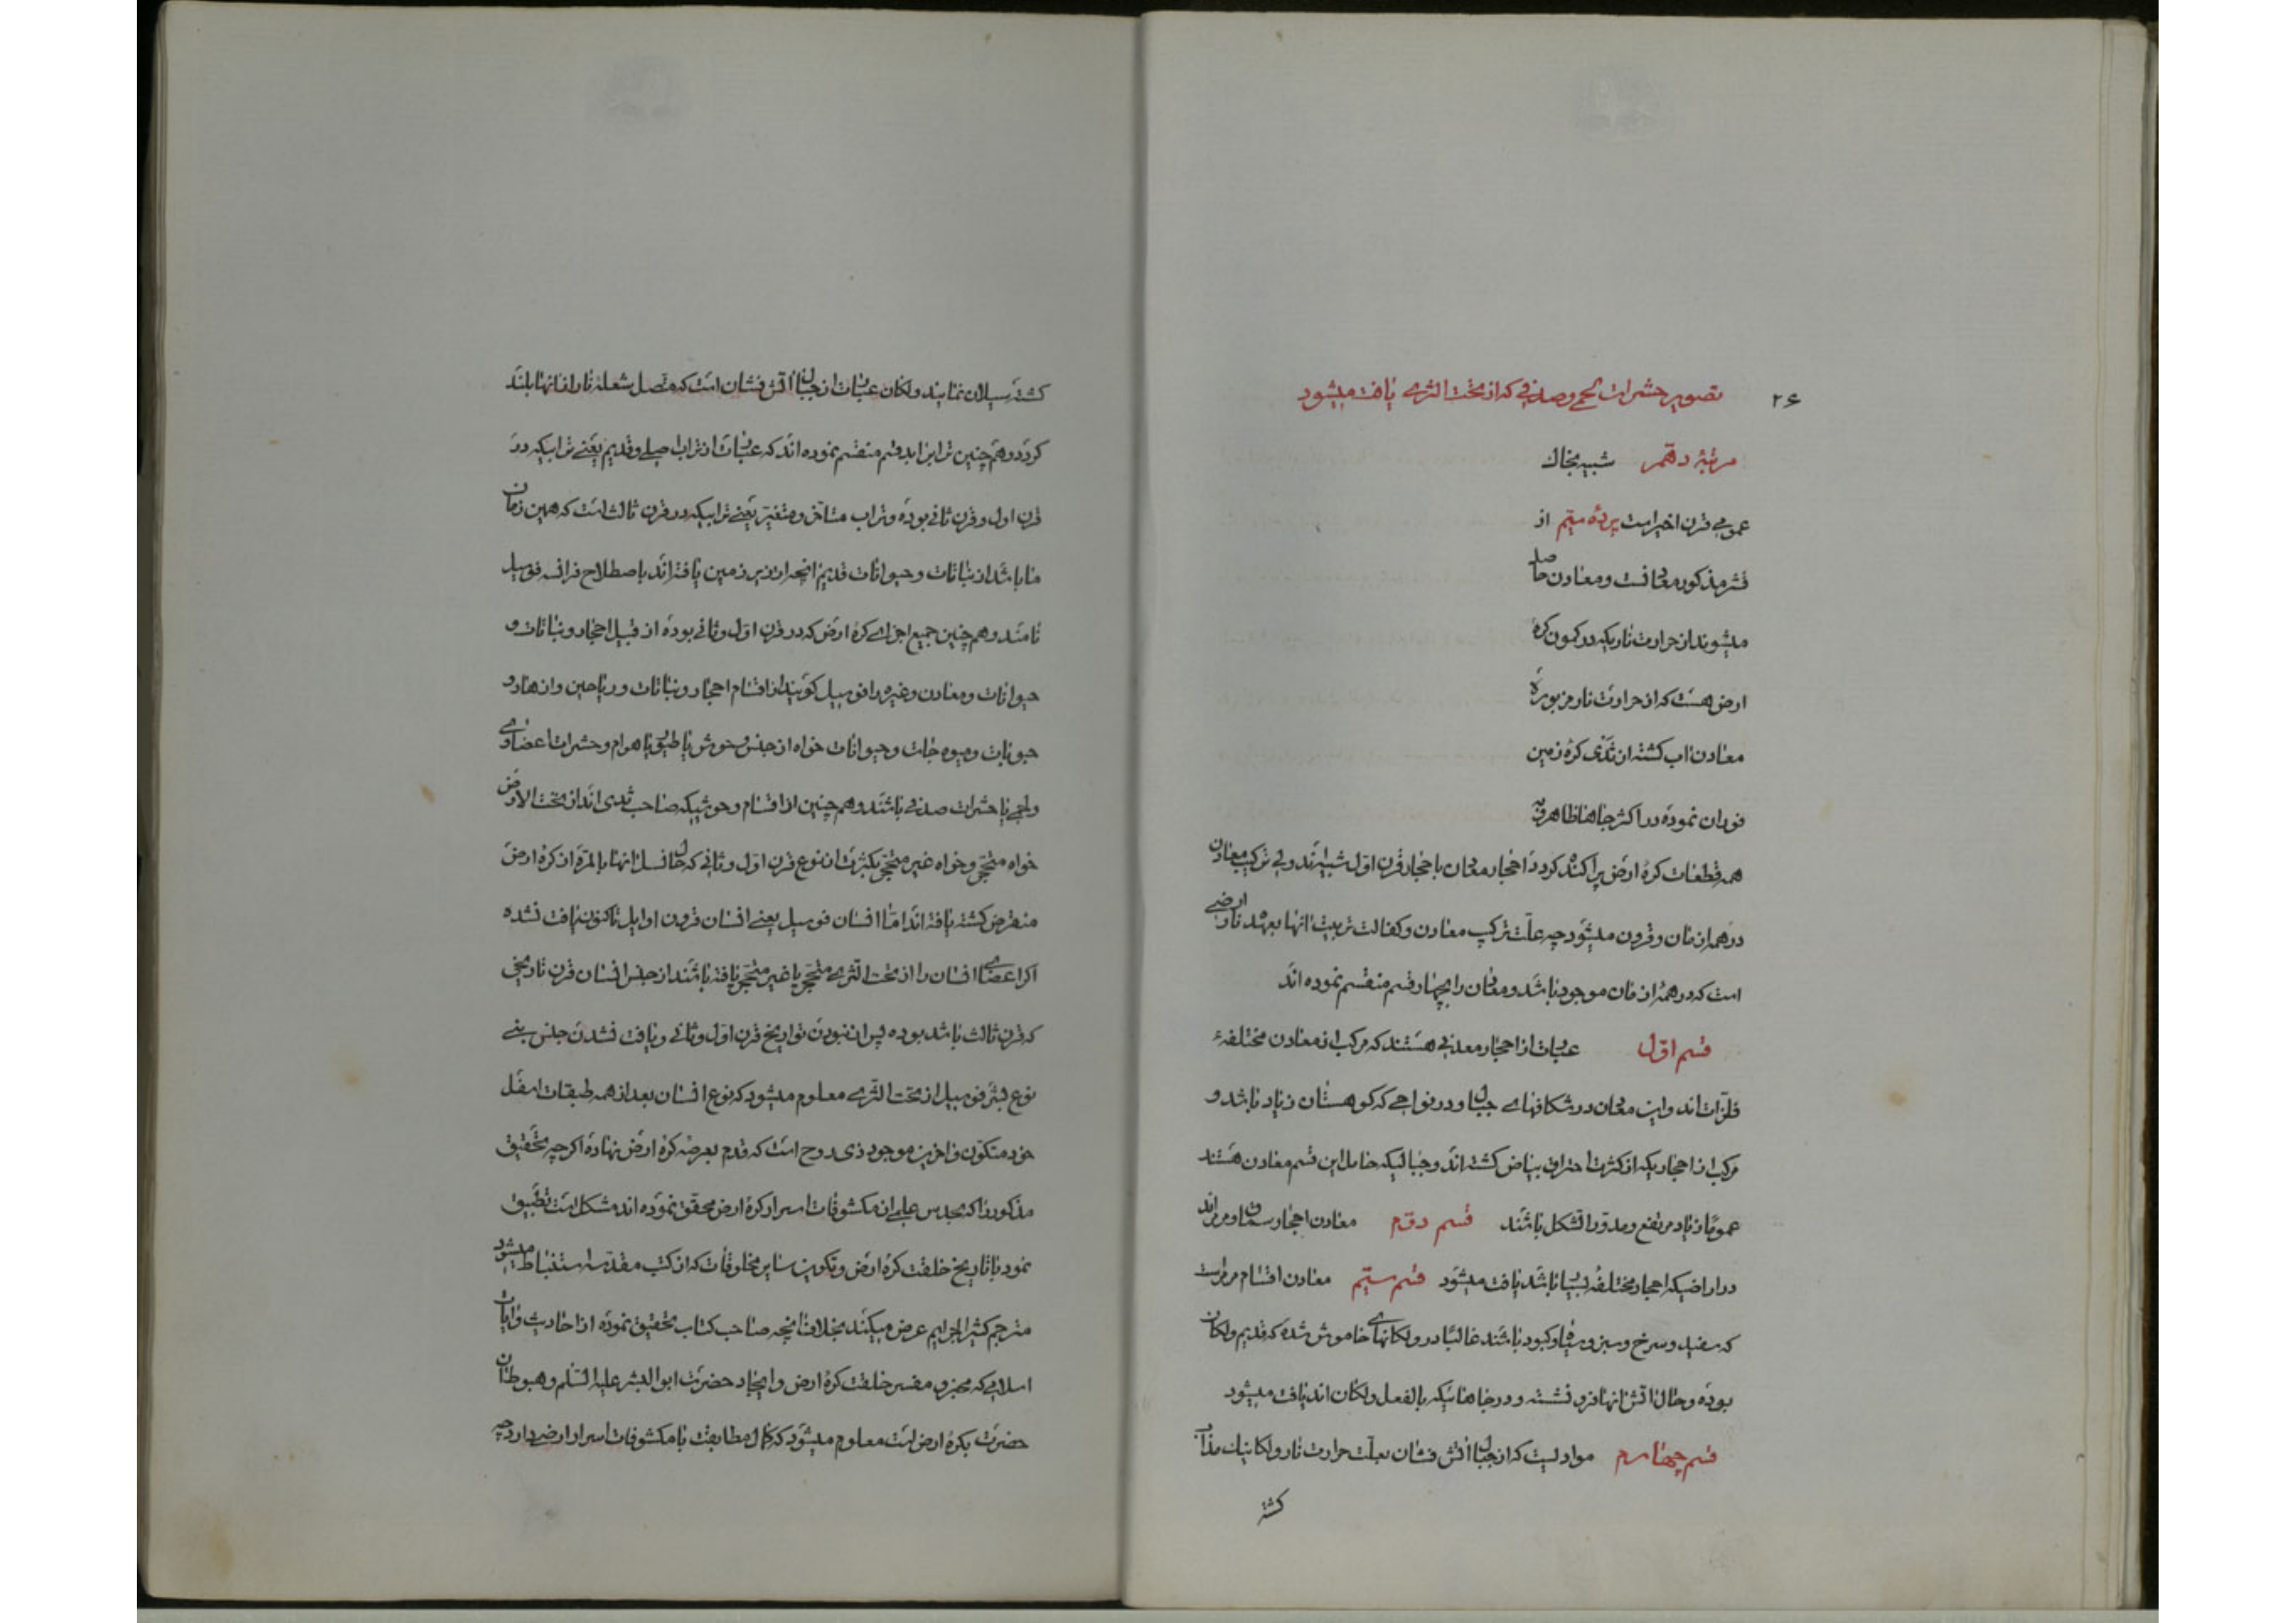 ۲۶
تصویر حشرات لحمی و صدفی که از تحت الثری یافت میشود
مرتبهٔ دهم شبیه بخاك
عمومی قرن اخیر است پردهٔ سیم از
قشر مذکور معدنست و معادن حاصل
میشوند از حرارت ناریکه در کمون کرهٔ
ارض هست که از حرارت نار مزبوره
معادن اب کشته از ثدی کرهٔ زمین
فوران نموده در اکثر جاها ظاهر و به
همه قطعات کرهٔ ارض پراکنده کردد احجار معادن باحجار قرن اول شبیه‌اند ولی ترکیب معادن
در همه ازمان و قرون میشود چه علت ترکیب معادن و کفالت تربیت انها بعهدهٔ نار ارضی
است که در همهٔ ازمان موجود باشد و معادن را بچهار قسم منقسم نموده اند
قسم اول عبارت از احجار معدنی هستند که مرکب از معادن مختلفهٔ
فلزات اند و این معادن در شکافهای جبال و در نواحی که کوهستان زیاد باشد و
مرکب از احجاریکه از کثرت احتراق بیاض کشته اند و جبالیکه حامل این قسم معادن هستند
عموما زیاد مرتفع و مدور الشکل باشند قسم دوم معادن احجار سماق و مرمراند
در اراضیکه احجار مختلفهٔ بسیار باشد یافت میشود قسم سیم معادن اقسام مرمر است
که سفید و سرخ و سبز و سیاه و کبود باشند غالبا در ولکانهای خاموش شده که قدیم ولکان
بوده و حال اتش انها فرو نشسته و در جاهائیکه بالفعل ولکان اند یافت میشود
قسم چهارم موادیست که از جبال اتش فشان بعلت حرارت نار ولکانیك مذاب
کشته
کشته سیلان نمایند ولکان عبارت از جبال اتش فشان است که متصل شعلهٔ نار از انها بلند
کردد و همچنین تراب را بدو قسم منقسم نموده اند که عبارت از تراب اصلی و قدیم یعنی ترابیکه در
قرن اول و قرن ثانی بوده و تراب متأخر و متغیر یعنی ترابیکه در قرن ثالث است که همین زمان
ما باشد از نباتات و حیوانات قدیم انچه از زیر زمین یافته‌اند باصطلاح فرانسه فوسیل
نامند و همچنین جمیع اجزای کرهٔ ارض که در قرن اول و ثانی بوده از قبیل احجار و نباتات و
حیوانات و معادن و غیره را فوسیل کویند از اقسام احجار و نباتات و ریاحین و ازهار و
حبوبات و میوه جات و حیوانات خواه از جنس وحوش یا طیور یا هوام و حشرات اعضاوی
و لحمی یا حشرات صدفی باشند و همچنین از اقسام وحوشیکه صاحب ثدی اند از تحت الارض
خواه متحجر و خواه غیر متحجر بکثرت از نوع قرن اول و ثانی که حال نسل انها بالمره از کرهٔ ارض
منقرض کشته یافته اند اما انسان فوسیل یعنی انسان قرون اوایل تاکنون یافت نشده
اکر اعضای انسان را از تحت الثری متحجر یا غیر متحجر یافته باشند از جنس انسان قرن تاریخی
که قرن ثالث باشد بوده پس از نبودن تواریخ قرن اول و ثانی و یافت نشدن جنس بنی
نوع بشر فوسیل از تحت الثری معلوم میشود که نوع انسان بعد از همه طبقات اسفل
خود متکون و اخرین موجود ذی روح است که قدم بعرصهٔ کرهٔ ارض نهاده اکرچه تحقیق
مذکور را که بحدس علمی از مکشوفات اسرار کرهٔ ارض محقق نموده اند مشکل است تطبیق
نمود با تاریخ خلقت کرهٔ ارض و تکوین سایر مخلوقات که از کتب مقدسه استنباط میشود
مترجم کثیر الجرایم عرض میکند بخلاف انچه صاحب کتاب تحقیق نموده از احادیث و ایات
اسلامی که مخبر و مفسر خلقت کرهٔ ارض و ایجاد حضرت ابو البشر علیه السلم و هبوط ان
حضرت بکرهٔ ارض است معلوم میشود که کمال مطابقت با مکشوفات اسرار ارضی دارد چه